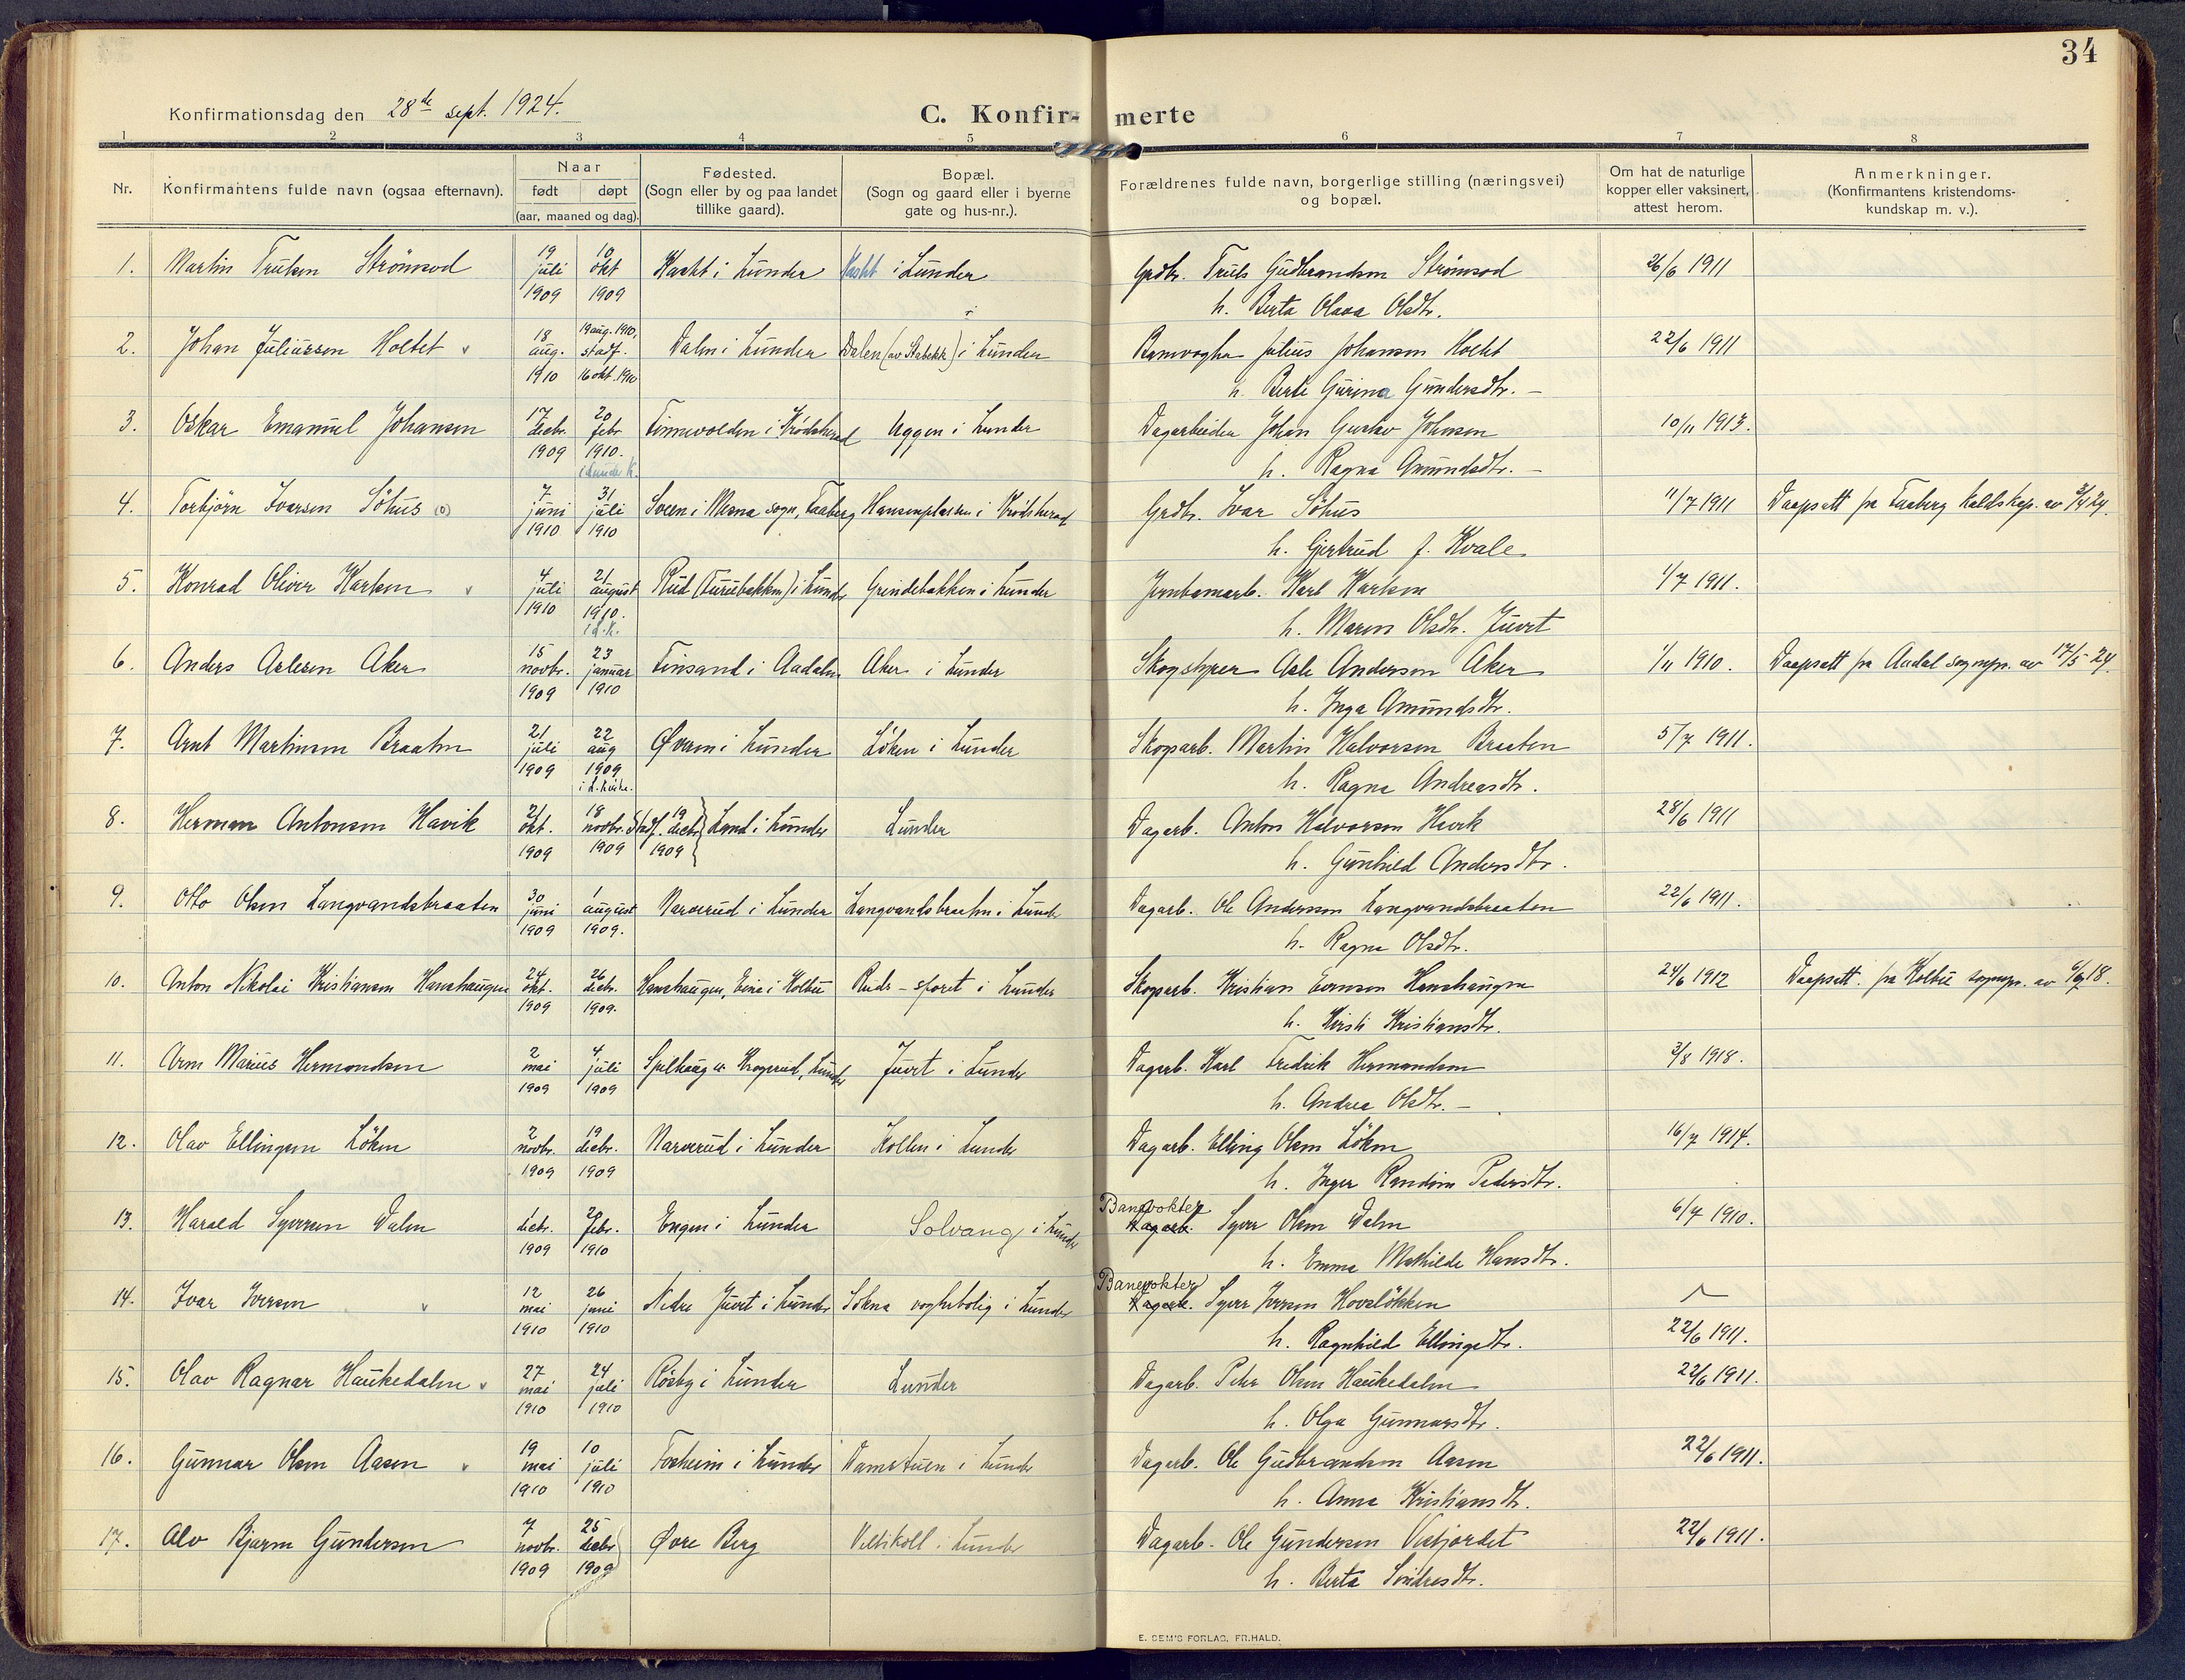 34
Konfirmationsdag den 28de sept. 1924.
C. Konfir- merte
1 2 3 4 5 6 7 8
Nr. Konfirmantens fulde navn (ogsaa efternavn). Naar født døpt (aar, maaned og dag). Fødested. (Sogn eller by og paa landet tillike gaard). Bopæl. (Sogn og gaard eller i byerne gate og hus-nr.). Forældrenes fulde navn, borgerlige stilling (næringsvei) og bopæl. Om hat de naturlige kopper eller vaksinert, attest herom. Anmerkninger. (Konfirmantens kristendoms-kundskap m. v.).
1. Martin Trulsen Strömsod 19 juli 1909 10 okt 1909 i Lunder i Lunder Grdbr. Truls Gudbrandsen Strömsod 26/6 1911
h. Berta Olava Olsdtr.
2. Johan Juliussen Holtet v 18 aug. 1910 19 aug. 1910, stadf. 16 okt. 1910 Dalen i Lunder Dalen (av Stabekk) i Lunder Banevogter Julius Johansen Holtet 22/6 1911
h. Berte Gurina Gundersdtr. –
3. Oskar Emanuel Johansen 17 decbr. 1909 20 febr 1910. i Lunder K. Finnevolden i Krödsherad Uggen i Lunder Dagarbeider Johan Gustav Johnsen 10/11 1913.
h. Ragna Amundsdtr. –
4. Torbjörn Ivarsen Söhus (o) 7 juni 1910 31 juli 1910 Sveen i Mesna sogn, Faaberg Hansenplassen i Krödsherad Grdbr. Ivar Söhus 11/7 1911 Daapsatt fra Faaberg kaldskap. av 3/4 24.
h. Gjertrud f. Kvale
5. Konrad Oliver Karlsen v 4 juli 1910 21 august 1910. i L. K. Rud (Furubakken) i Lunder Grindebakken i Lunder Jernbanearb. Karl Karlsen 1/7 1911.
h. Maren Olsdtr. Juvet
6. Anders Aslesen Aker 15 novbr. 1909 23 januar 1910 Finsand i Aadalen Aker i Lunder Skogstyrer Asle Anderson Aker 1/11 1910. Daapsatt fra Aadal sognepr. av 17/5-24.
h. Inga Amundsdtr.
7. Arnt Martinsen Braaten 21 juli 1909 22 aug 1909 i L. kirke. Øveren i Lunder Löken i Lunder Skogsarb. Martin Halvorsen Braaten 5/7 1911.
h. Ragna Andreasdtr.
8. Herman Antonsen Havik 21 okt. 1909 18 novbr. 1909 Stadf. 19 decbr. 1909 Lund i Lunder Lunder Dagarb. Anton Halvorsen Havik 28/6 1911
h. Gunhild Andersdtr.
9. Otto Olsen Langvandsbraaten 30 juni 1909 1 august 1909. Narverud i Lunder Langvandsbraaten i Lunder Dagarb. Ole Andersen Langvandsbraaten 22/6 1911.
h. Ragna Olsdtr.
10. Anton Nikolai Kristiansen Hamshaugen 24 okt. 1909 26 decbr. 1909. Hamshaugen, Eina i Kolbu Ruds-sporet i Lunder Skogsarb. Kristian Evensen Hamshaugen 24/6 1912 Daapsatt. fra Kolbu sognepr. av 6/9 18.
h. Kirsti Kristiansdtr.
11. Arne Marius Hermandsen 2 mai 1909 4 juli 1909 Spilhaug u. Krogerud, Lunder Juvet i Lunder Dagarb. Karl Fredrik Hermandsen 3/8 1918.
h. Andrea Olsdtr. –
12. Olav Ellingsen Löken 2 novbr. 1909 19 decbr. 1909 Narverud i Lunder Kollen i Lunder Dagarb. Elling Olsen Löken 16/7 1914.
h. Inger Randine Pedersdtr.
13. Harald Syversen Dalen 1 decbr. 1909 20 febr. 1910 Engen i Lunder Solvang i Lunder Banevokter Dagarb. Syver Olsen Dalen 6/7 1910.
h. Emma Mathilde Hansdtr.
14. Ivar Iversen v 12 mai 1910 26 juni 1910 Nedre Juvet i Lunder Sokna vogterbolig i Lunder Banevokter Dagarb. Syver Iversen Hovslökken
h. Ragnhild Ellingsdtr. 22/6 1911.
15. Olav Ragnar Haukedalen v 27 mai 1910 24 juli 1910 Rösby i Lunder Lunder Dagarb. Peder Olsen Haukedalen 22/6 1911.
h. Olga Gunnarsdtr.
16. Gunnar Olsen Aasen v 19 mai 1910 10 juli 1910 Forheim i Lunder Damstuen i Lunder Dagarb. Ole Gudbrandsen Aasen 22/6 1911.
h. Anna Kristiansdtr.
17. Alv Bjarne Gundersen 7 novbr. 1909 25 decbr 1909 Øvre Berg Veltikoll i Lunder Dagarb. Ole Gundersen Vesfjordet 22/6 1911.
h. Berta Sindresdtr.
E. SEM'S FORLAG, FR.HALD.